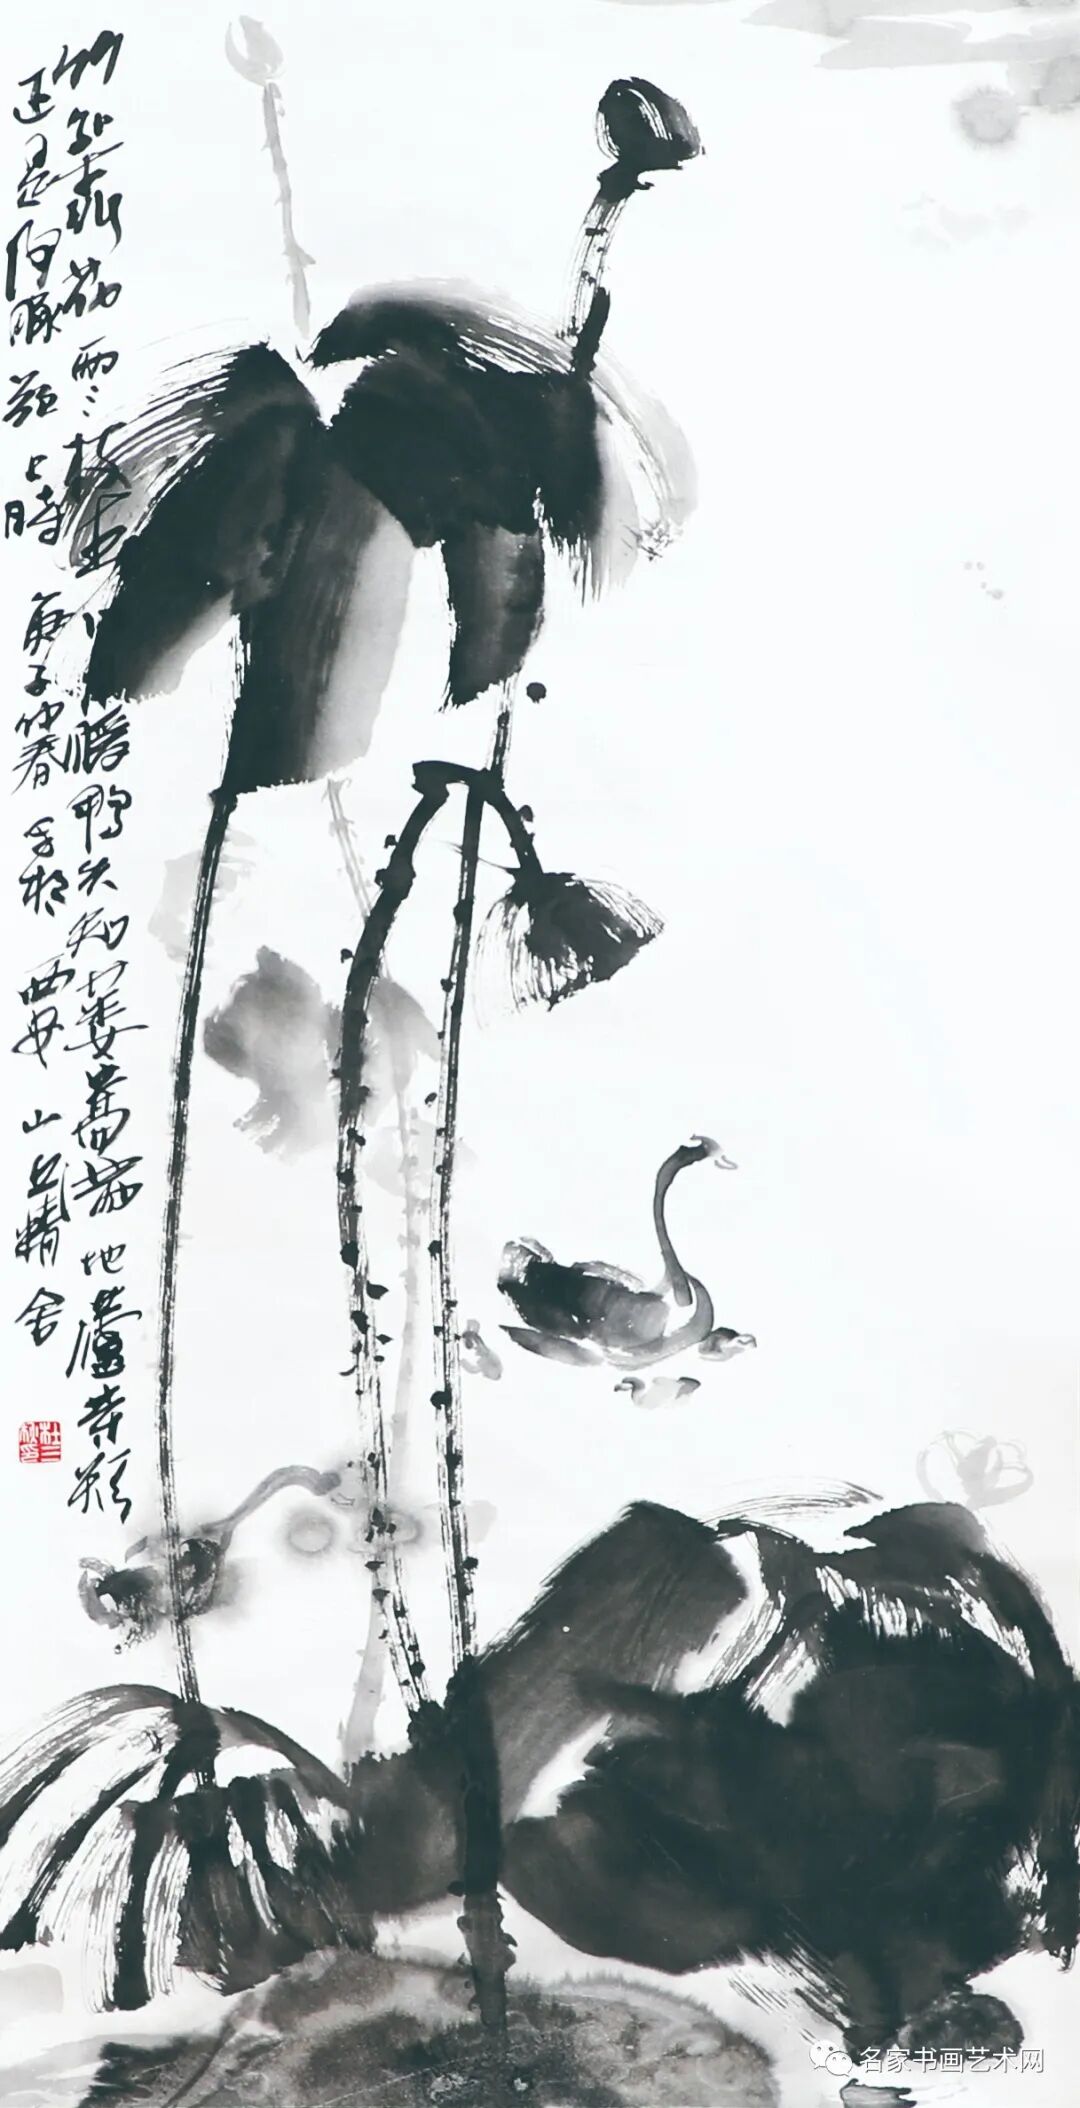 竹外桃花两三枝春江水暖鸭先知蒌蒿满地芦芽短
正是河豚欲上时 庚子仲春 于 西安 山丘精舍
名家书画艺术网